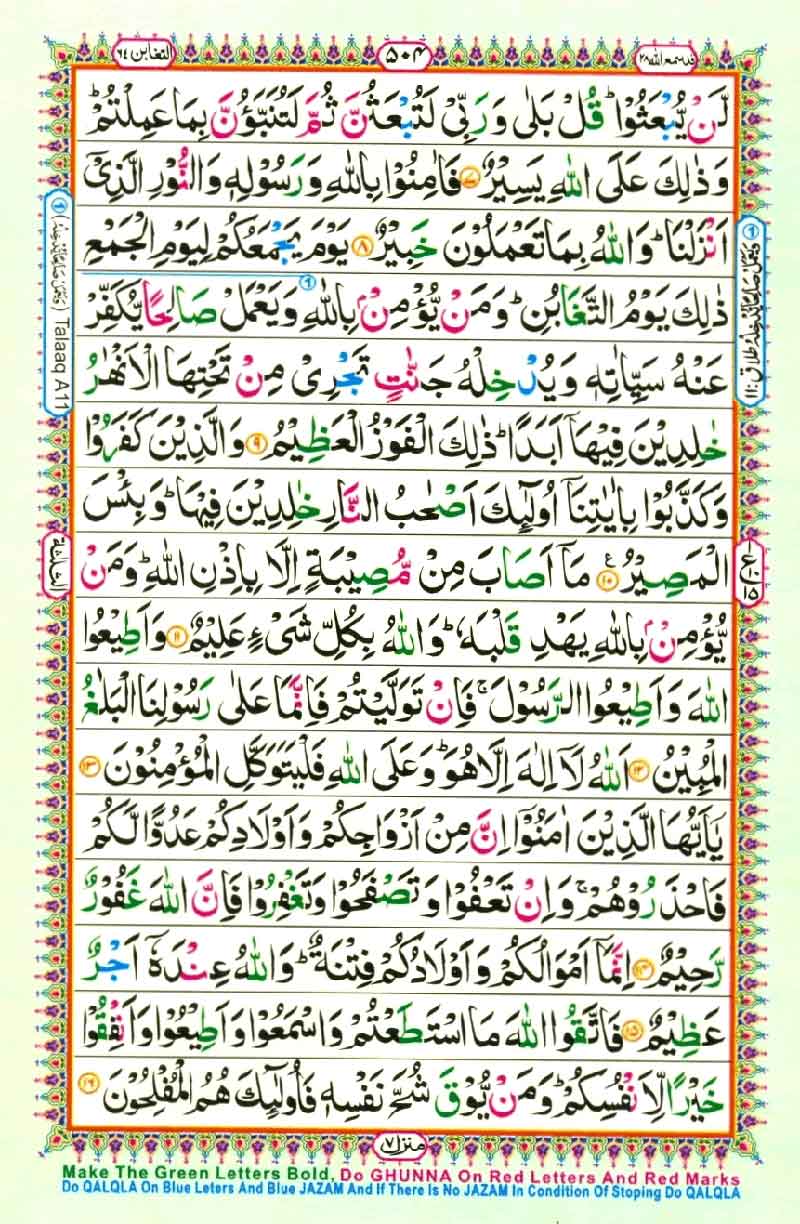 قد سمع الله ٢٨
۵۰۴
التغابن ٦٤
لَّنْ يُّبْعَثُوْا ؕ قُلْ بَلٰى وَرَبِّىْ لَتُبْعَثُنَّ ثُمَّ لَتُنَبَّؤُنَّ بِمَا عَمِلْتُمْ ؕ
وَذٰلِكَ عَلَى اللّٰهِ يَسِيْرٌ ﴿۷﴾ فَاٰمِنُوْا بِاللّٰهِ وَرَسُوْلِهٖ وَالنُّوْرِ الَّذِىْۤ
اَنْزَلْنَا ؕ وَاللّٰهُ بِمَا تَعْمَلُوْنَ خَبِيْرٌ ﴿۸﴾ يَوْمَ يَجْمَعُكُمْ لِيَوْمِ الْجَمْعِ
ذٰلِكَ يَوْمُ التَّغَابُنِ ؕ وَمَنْ يُّؤْمِنْۢ بِاللّٰهِ وَيَعْمَلْ صَالِحًا يُّكَفِّرْ
عَنْهُ سَيِّاٰتِهٖ وَيُدْخِلْهُ جَنّٰتٍ تَجْرِىْ مِنْ تَحْتِهَا الْاَنْهٰرُ
خٰلِدِيْنَ فِيْهَاۤ اَبَدًا ؕ ذٰلِكَ الْفَوْزُ الْعَظِيْمُ ﴿۹﴾ وَالَّذِيْنَ كَفَرُوْا
وَكَذَّبُوْا بِاٰيٰتِنَاۤ اُولٰٓئِكَ اَصْحٰبُ النَّارِ خٰلِدِيْنَ فِيْهَا ؕ وَبِئْسَ
الْمَصِيْرُ ﴿۱۰﴾ مَاۤ اَصَابَ مِنْ مُّصِيْبَةٍ اِلَّا بِاِذْنِ اللّٰهِ ؕ وَمَنْ
يُّؤْمِنْۢ بِاللّٰهِ يَهْدِ قَلْبَهٗ ؕ وَاللّٰهُ بِكُلِّ شَىْءٍ عَلِيْمٌ ﴿۱۱﴾ وَاَطِيْعُوا
اللّٰهَ وَاَطِيْعُوا الرَّسُوْلَ ۚ فَاِنْ تَوَلَّيْتُمْ فَاِنَّمَا عَلٰى رَسُوْلِنَا الْبَلٰغُ
الْمُبِيْنُ ﴿۱۲﴾ اَللّٰهُ لَاۤ اِلٰهَ اِلَّا هُوَ ؕ وَعَلَى اللّٰهِ فَلْيَتَوَكَّلِ الْمُؤْمِنُوْنَ ﴿۱۳﴾
يٰۤاَيُّهَا الَّذِيْنَ اٰمَنُوْۤا اِنَّ مِنْ اَزْوَاجِكُمْ وَاَوْلَادِكُمْ عَدُوًّا لَّكُمْ
فَاحْذَرُوْهُمْ ۚ وَاِنْ تَعْفُوْا وَتَصْفَحُوْا وَتَغْفِرُوْا فَاِنَّ اللّٰهَ غَفُوْرٌ
رَّحِيْمٌ ﴿۱۴﴾ اِنَّمَاۤ اَمْوَالُكُمْ وَاَوْلَادُكُمْ فِتْنَةٌ ؕ وَاللّٰهُ عِنْدَهٗۤ اَجْرٌ
عَظِيْمٌ ﴿۱۵﴾ فَاتَّقُوا اللّٰهَ مَا اسْتَطَعْتُمْ وَاسْمَعُوْا وَاَطِيْعُوْا وَاَنْفِقُوْا
خَيْرًا لِّاَنْفُسِكُمْ ؕ وَمَنْ يُّوْقَ شُحَّ نَفْسِهٖ فَاُولٰٓئِكَ هُمُ الْمُفْلِحُوْنَ ﴿۱۶﴾
Talaaq A11
الثلثة
منزل ۷
Make The Green Letters Bold, Do GHUNNA On Red Letters And Red Marks
Do QALQLA On Blue Leters And Blue JAZAM And If There Is No JAZAM In Condition Of Stoping Do QALQLA